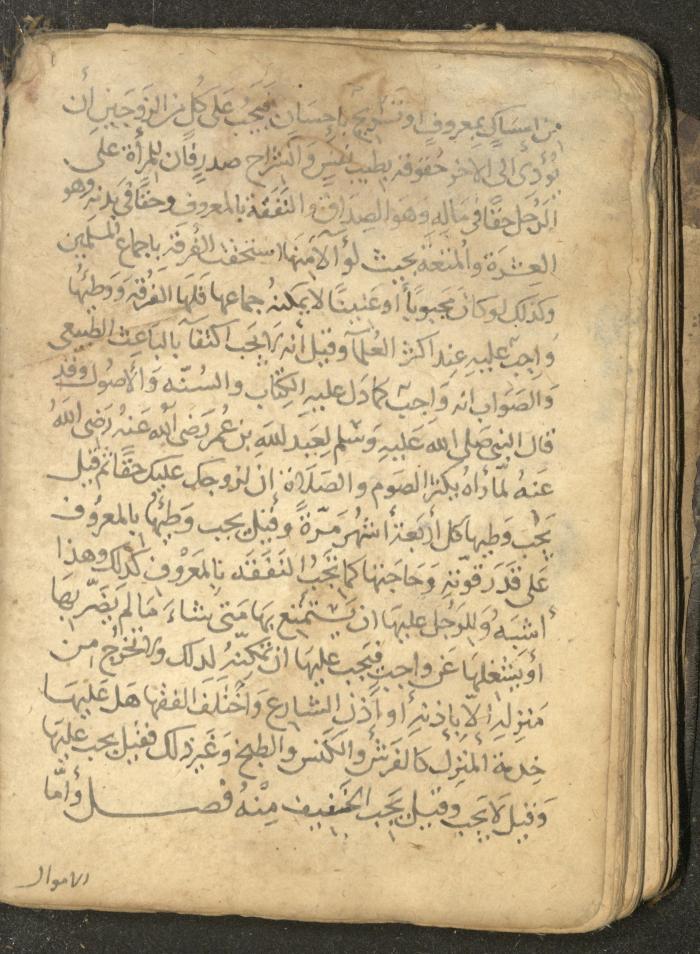 من امساك بمعروف او تسريح باحسان فيجب على كل من الزوجين أن
يؤدى الى الاخر حقوقه بطيب نفس وانشراح صدر فان للمرأة على
الرجل حقا فى ماله وهو الصداق والنفقة بالمعروف وحقا فى بدنه وهو
العشرة والمتعة بحيث لو آلا منها استحقت الفرقة باجماع المسلمين
وكذلك لو كان مجبوبا أو عنينا لا يمكنه جماعها فلها الفرقة ووطيها
واجب عليه عند اكثر العلمآ وقيل أنه لا يجب اكتفآ بالباعث الطبيعى
والصواب انه واجب كما دل عليه الكتاب والسنه والأصول وقد
قال النبى صلى الله عليه وسلم لعبد لله بن عمر رضى الله عنه رضى الله
عنه لما رأه يكثر الصوم والصلاة ان لزوجك عليك حقا ثم قيل
يجب وطيها كل أربعة أشهر مرة وقيل يجب وطئها بالمعروف
على قدر قوته وحاجتها كما تجب النفقه بالمعروف كذلك وهذا
أشبه وللرجل عليها ان يستمتع بها متى شاء ما لم يضر بها
أو يشغلها عن واجب فيجب عليها ان تمكنه لذلك ولا تخرج من
منزله الا بإذنه أو أذن الشارع واختلف الفقها هل عليها
خدمة المنزل كالفرش والكنس والطبخ وغير ذلك فقيل يجب عليها
وقيل لا يجب وقيل يجب الخفيف منه فصل وأما
الاموال